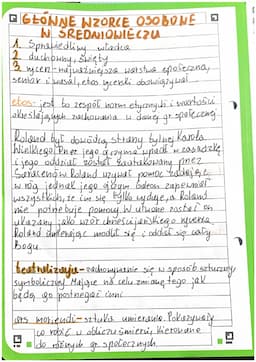 GŁÓWNE WZORCE OSOBOWE
W ŚREDNIOWIECZU
1. Sprawiedliwy władca
2. duchowny, święty
3. rycerz - najważniejsza warstwa społeczna,
senior i wasal, etos rycerski obowiązywał
etos - jest to zespół norm etycznych i wartości
określających zachowania w danej gr. społecznej
Roland był dowódcą straży tylnej Karola
Wielkiego. Przez jego ojczyma wpadł w zasadzkę
i jego oddział został zaatakowany przez
Saracenów. Roland wzywał pomoc
w róg, jednak jego ojczym zapewniał
wszystkich, że im się tylko wydaje, a Roland
nie potrzebuje pomocy. W utworze został on
ukazany jako wzór chrześcijańskiego rycerza,
Roland umierając modlił się i oddał się cały
Bogu.
teatralizacja - zachowywanie się w sposób sztuczny
symboliczny. Mające na celu zmianę tego jak
będą go postrzegać inni
ars moriendi - sztuka umierania. Pokazywały
co robić w obliczu śmierci, kierowane
do różnych gr. społecznych